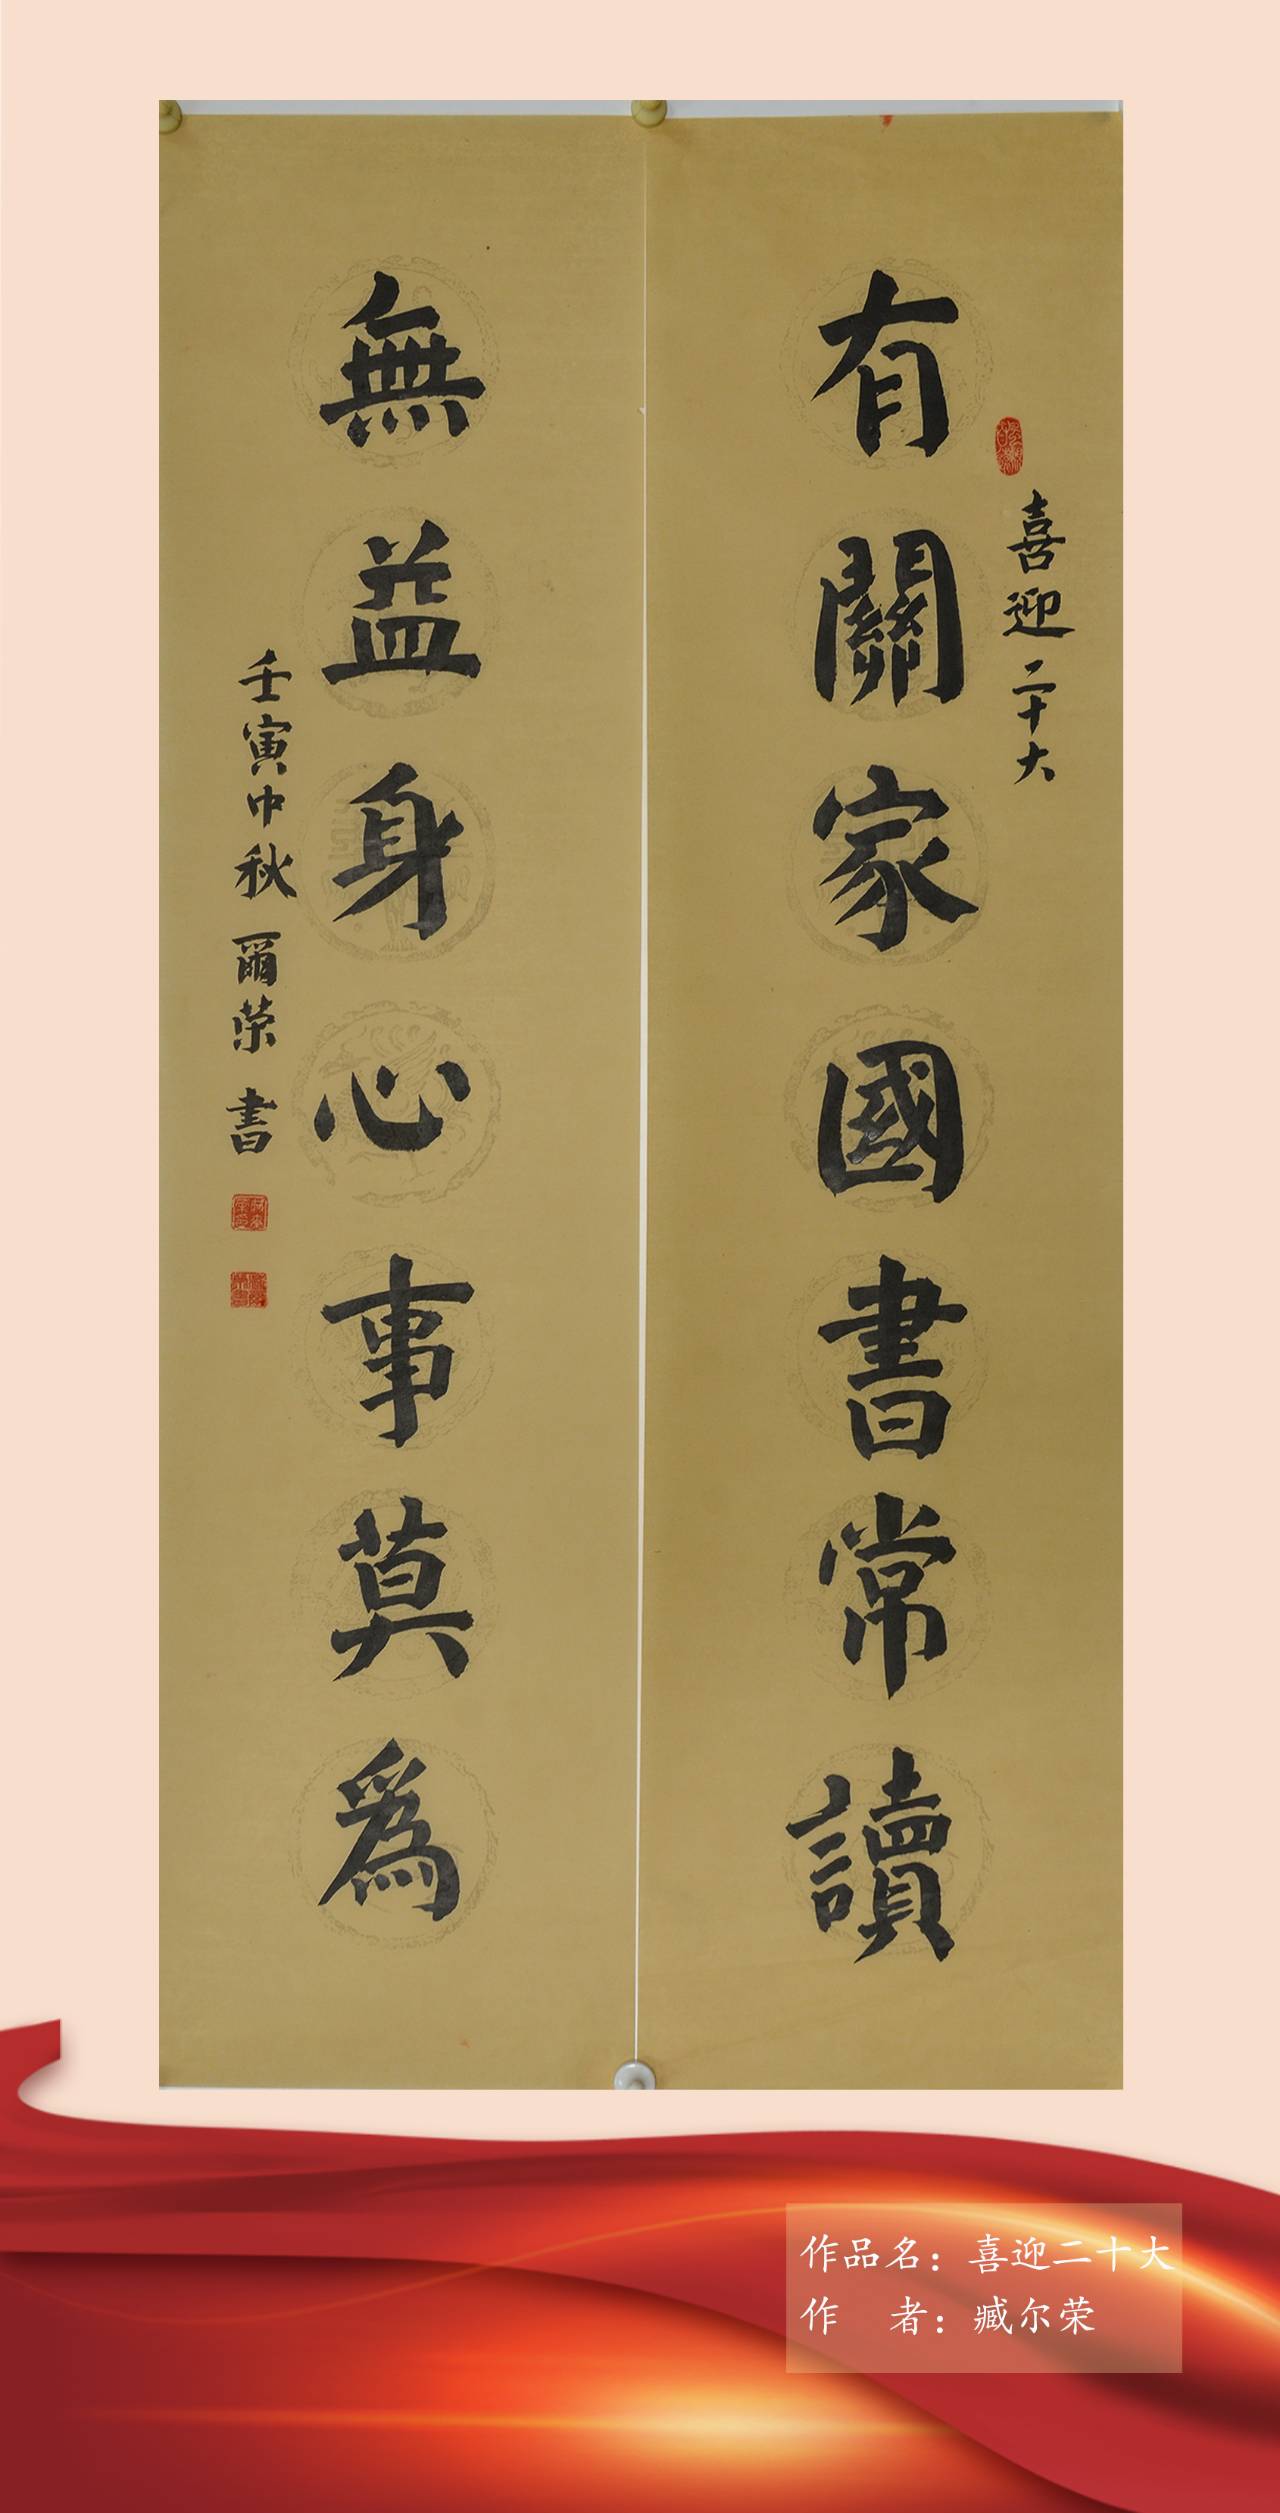 喜迎二十大
有關家國書常讀
無益身心事莫為
壬寅中秋爾荣書
作品名：喜迎二十大
作者：臧尔荣